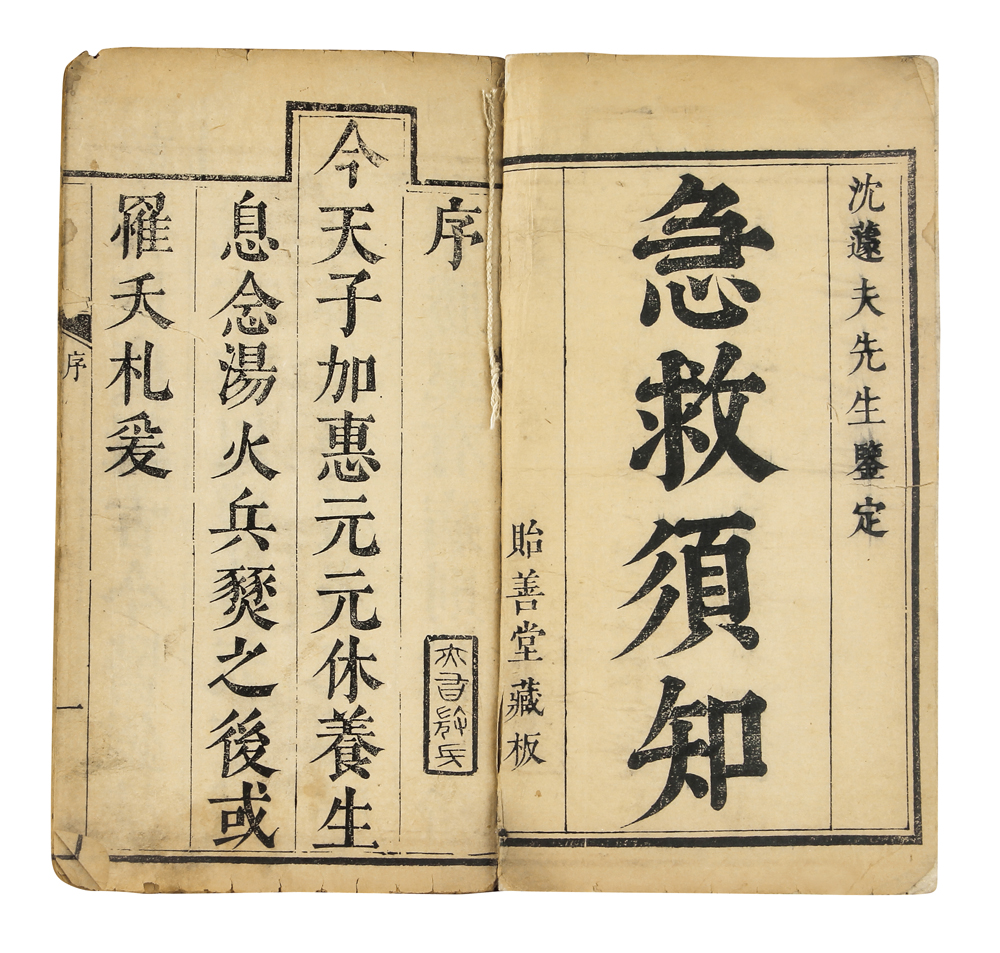 沈夫先生鑒定
急救須知
貽善堂藏板
序
今天子加惠元元休養生
息念湯火兵燹之後或
罹夭札爰
序
一